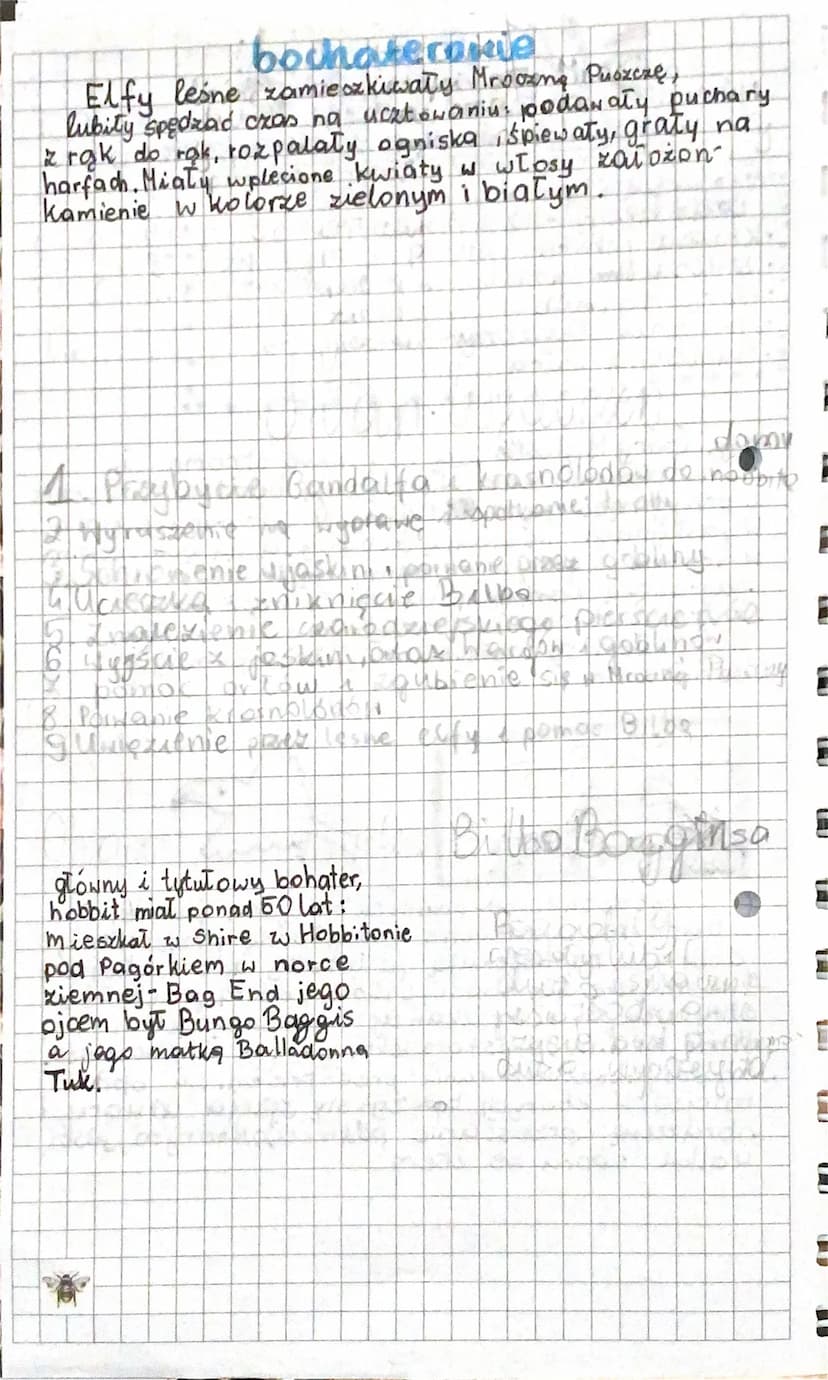 bochaterowie
Elfy leśne zamieszkiwały Mroczną Puszczę,
lubiły spędzad czas na ucztowaniu: podawały puchary
z rąk do rąk, rozpalały ogniska, śpiewały, grały na
harfach. Miały wplecione kwiaty w włosy
kamienie w kolorze zielonym i białym.
domu
1. Przybycie Gandalfa i krasnolodów do hobbita
2 Wyruszenie na wyprawe i spotkanie
3. Schronienie w jaskini i porwanie przez gobliny
4 Ucieczka i zniknięcie Bilba
5 Znalezienie czarodziejskiego pierścienia
6 wyjście z jaskini, atak wargów i goblinów
7 pomoc orłów i zgubienie się w Mrocznej Puszczy
8 Porwanie krasnolódów
9 Uwięzienie przez leśne elfy i pomoc Bilba
Bilbo Bagginsa
główny i tytułowy bohater,
hobbit miał ponad 50 lat:
mieszkał w Shire w Hobbitonie
pod Pagórkiem w norce
ziemnej- Bag End jego
ojcem był Bungo Baggis
a jego matką Balladonna
Tuk.